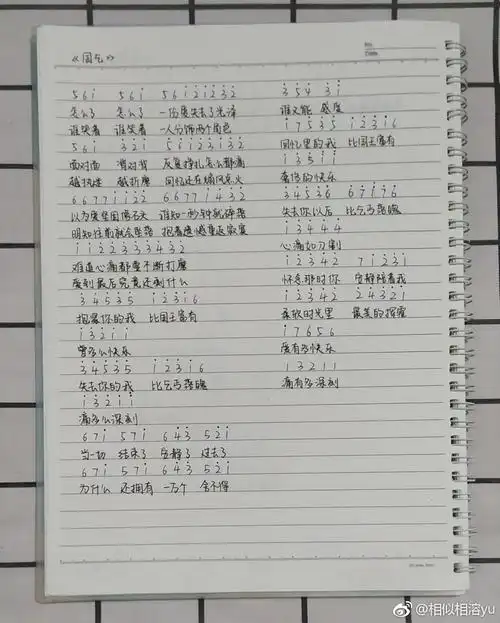 《国乞》
5 6 i 5 6 i 5 6 i 2 i 2 3 2
怎么了 怎么了 一份爱失去了光泽
谁哭着 谁笑着 一人分饰两个角色
5 6 i 3 2 i 5 6 i 2 3 i 3 2
面对面 背对背 反复挣扎怎么都痛
越执迷 越折磨 回忆还在煽风点火
6 6 7 7 i i 2 2 6 6 7 7 i 4 3 2
以为爱坚固像石头 谁知一秒钟就碎落
明知往前就会坠落 抱着遗憾重返寂寞
i i 2 2 3 3 3 4 3 2
难道心痛都要不断打磨
爱到最后究竟还剩什么
3 4 5 3 5 i 2 3 i 6
抱紧你的我 比国王富有
i 3 2 i i
曾多么快乐
3 4 5 3 5 i 2 3 i 6
失去你的我 比乞丐落魄
i 3 2 i i
痛多么深刻
6 7 i 5 7 i 6 4 3 5 2 i
当一切 结束了 安静了 过去了
6 7 i 5 7 i 6 4 3 5 2 i
为什么 还拥有 一万个 舍不得
3 5 4 3 i
谁又能 感受
i 7 5 3 5 i 2 3 i 6
回忆里的我 比国王富有
i 3 5 i i
奢侈的快乐
3 4 5 3 6 6 7 i 7 6
失去你以后 比乞丐落魄
i 3 4 4 4
心痛如刀割
i 2 3 4 2 7 i 2 3 i
怀念那时你 安静陪着我
i 2 3 4 2 2 4 3 2 i
柔软时光里 最美的挥霍
i 7 6 5 6
爱有多快乐
i 3 2 i i
痛有多深刻
@相似相溶yu